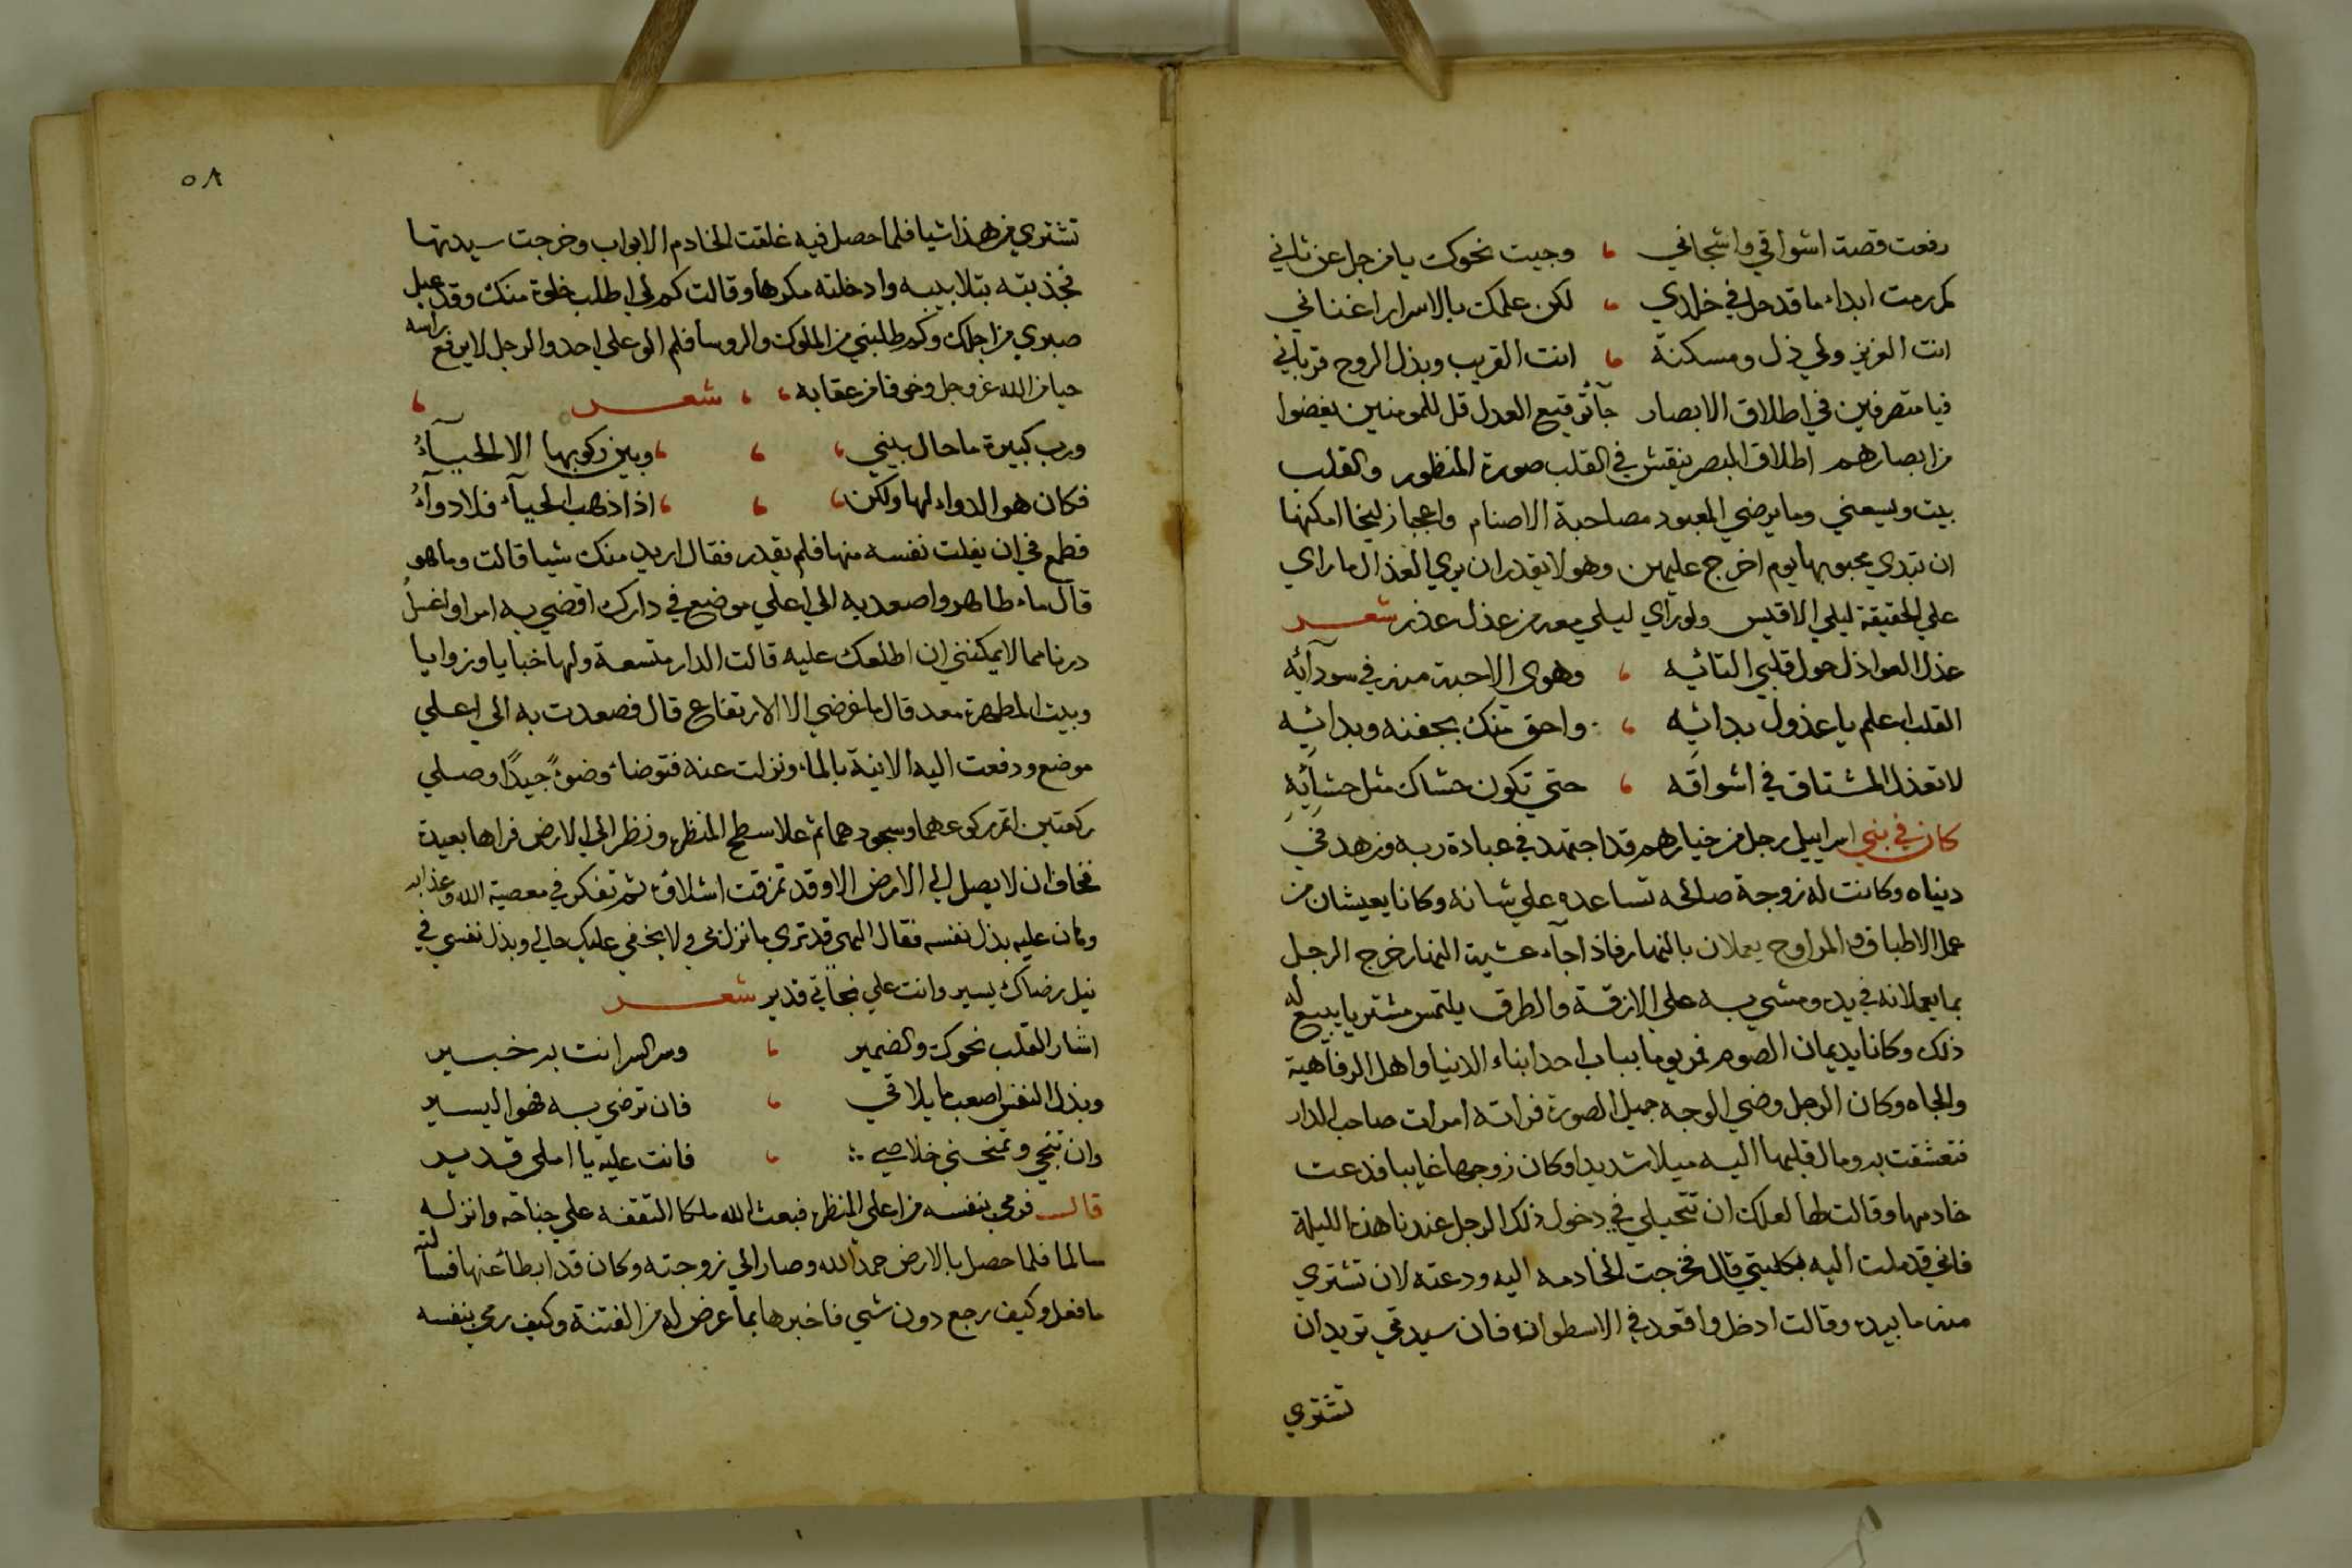 رفعت قصة اشواقي واشجاني ، وجيت نحوك يا من جل عن ثاني
كم رمت ابداء ما قد حل في خلدي ، لكن علمك بالاسرار اغناني
انت العزيز ولي ذل ومسكنة ، انت القريب وبذل الروح قرباني
فيا متصرفين في اطلاق الابصار جآ توقيع العدل قل للمومنين يغضوا
من ابصارهم اطلاق البصر ينقش في القلب صورة المنظور والقلب
بيت ويسعني وما يرضي المعبود مصاحبة الاصنام واعجبا زليخا امكنها
ان تبدي محبوبها يوم اخرج عليهن وهو لا يقدر ان يري العذال ما راي
علي الحقيقة ليلي الا قيس ولو راي ليلي معه من عذل عذر شعر
عذل العواذل حول قلبي التائيه ، وهوى الاحبة منه في سودآئه
القلب اعلم يا عذول بدائيه ، واحق منك بجفنه وبدائيه
لا تعذل المشتاق في اشواقه ، حتي تكون حشاك مثل حشائيه
كان في بني اسراييل رجل من خيارهم قد اجتهد في عبادة ربه وزهد في
دنياه وكانت له زوجة صالحه تساعده علي شانه وكانا يعيشان من
عمل الاطباق والمراوح يعملان بالنهار فاذا جآء عشية النهار خرج الرجل
بما يعملانه في يده ومشي به علي الازقة والطرق يلتمس مشتريا يبيع له
ذلك وكانا يديمان الصوم فمر يوما بباب احد ابناء الدنيا واهل الرفاهية
والجاه وكان الرجل وضي الوجه جميل الصورة فراته امرات صاحب الدار
فتعشقت به ومال قلبها اليه ميلا شديدا وكان زوجها غايبا فدعت
خادمها وقالت لها لعلك ان تتحيلي في دخول ذلك الرجل عندنا هذه الليلة
فاني قد ملت اليه بكليتي قال فخرجت الخادمه اليه ودعته لان تشتري
منه ما بيده وقالت ادخل واقعد في الاسطوانه فان سيدتي تريد ان
تشتري
٥٨
تشتري من هذا شيا فلما حصل فيه غلقت الخادم الابواب وخرجت سيدتها
فجذبته بتلابيبه وادخلته مكرها وقالت كم لي اطلب خلوة منك وقد عيل
صبري من اجلك وكم طلبني من الملوك والروسا فلم الو علي احد والرجل لا يرفع راسه
حيا من الله عز وجل وخوفا من عقابه ، ، شعر ،
ورب كبيرة ما حال بيني ، ، ، وبين ركوبها الا الحيآءُ
فكان هو الدواء لها ولكن ، ، ، اذا ذهب الحيآء فلا دوآءُ
قطمع في ان يفلت نفسه منها فلم يقدر فقال اريد منك شيا قالت وما هو
قال ماء طاهر واصعد به الي اعلي موضع في دارك اقضي به امرا واغسل
درنا مما لا يمكنني ان اطلعك عليه قالت الدار متسعة ولها خبايا وزوايا
وبيت المطهرة معد قال ما غرضي الا الارتفاع قال فصعدت به الي اعلي
موضع ودفعت اليه الانية بالماء ونزلت عنه فتوضاء وضوءً جيدًا وصلي
ركعتين اتم ركوعهما وسجودهما ثم علا سطح المنظره ونظر الي الارض فراها بعيدة
فخاف ان لا يصل الي الارض الا وقد تمزقت اشلاؤه ثم تفكر في معصية الله وعذابه
وهان عليه بذل نفسه فقال الهي قد تري ما نزل بي ولا يخفي عليك حالي وبذل نفسي في
نيل رضاك يسير وانت علي نجاتي قدير شعر
اشار القلب نحوك والضمير ، وسر السر انت به خبير
وبذل النفس اصعب ما يلاقي ، فان ترضى به فهو اليسير
وان تنجي وتمنحني خلاصي ، فانت عليه يا املى قدير
قال فرمى بنفسه من اعلي المنظره فبعث الله ملكا التقفه علي جناحه وانزله
سالما فلما حصل بالارض حمد الله وصار الي زوجته وكان قد ابطا عنها فسالته
ما فعل وكيف رجع دون شي فاخبرها بما عرض له من الفتنة وكيف رمي بنفسه